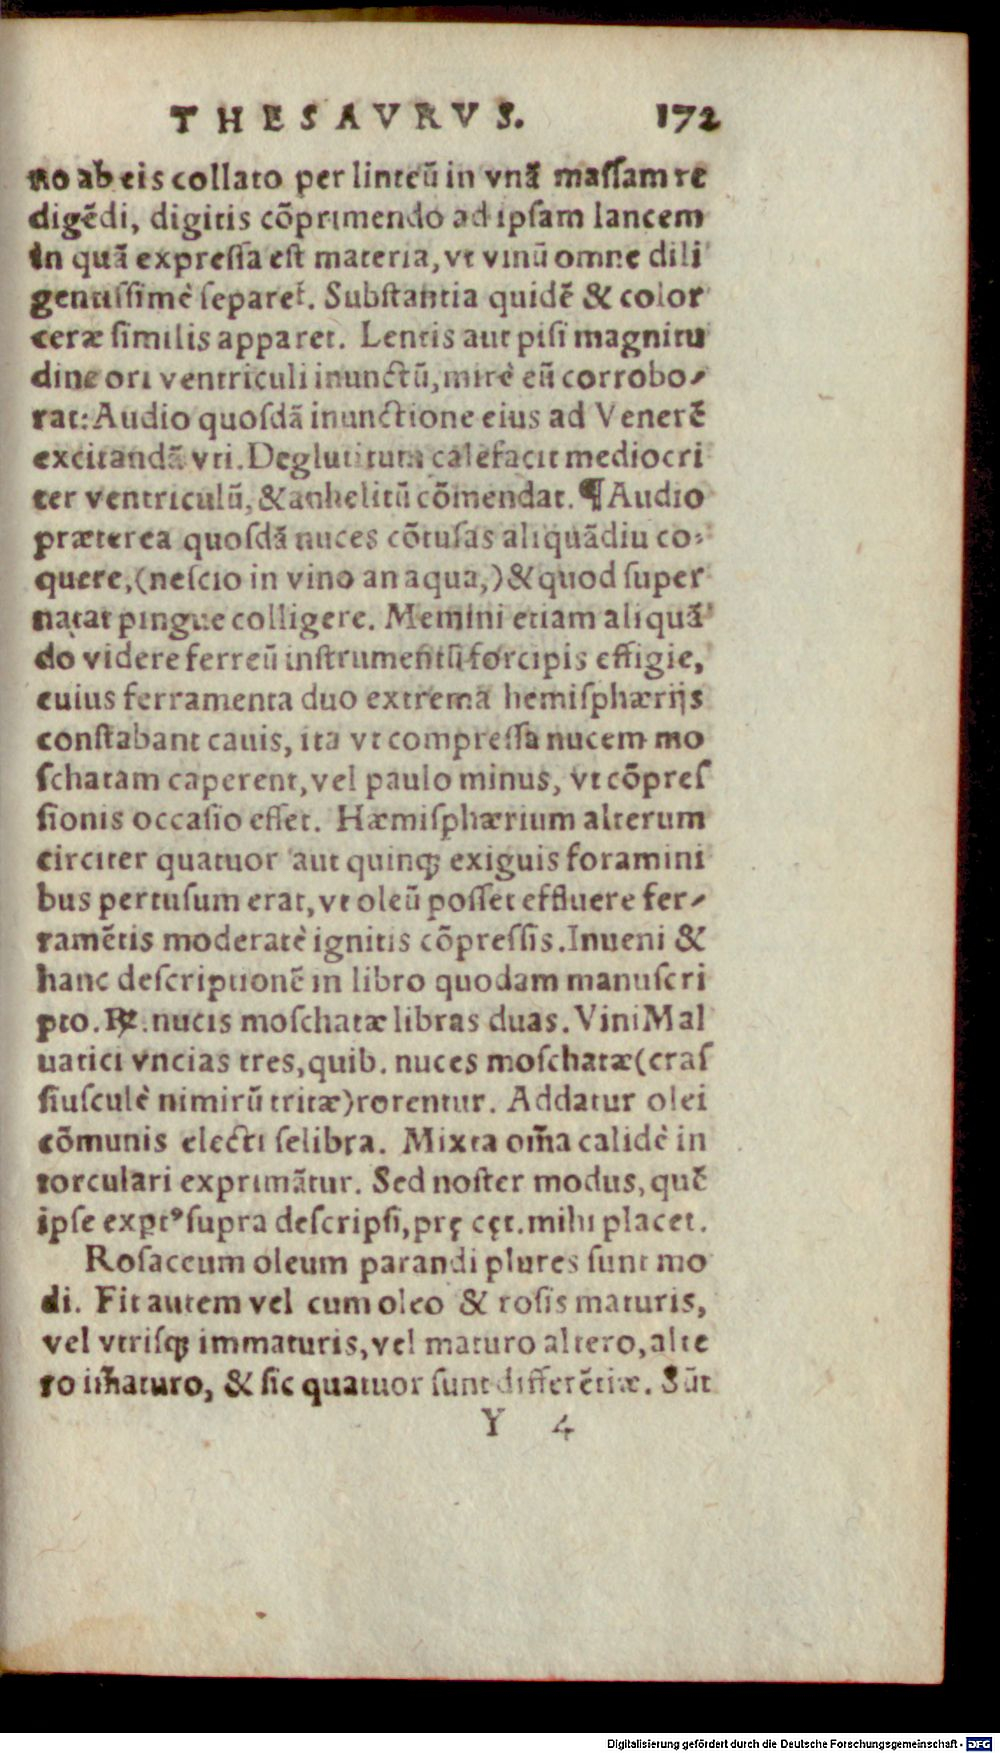 THESAVRVS. 172
no ab eis collato per linteū in vnā massam re
digēdi, digitis cōprimendo ad ipsam lancem
in quā expressa est materia, vt vinū omne dili
gentissimè separet᷑. Substantia quidē & color
ceræ similis apparet. Lentis aut pisi magnitu
dine ori ventriculi inunctū, mirè eū corrobo-
rat: Audio quosdā inunctione eius ad Venerē
excitandā vti. Deglutitum calefacit mediocri
ter ventriculū, & anhelitū cōmendat. ¶ Audio
præterea quosdā nuces cōtusas aliquādiu co-
quere, (nescio in vino an aqua,) & quod super
natat pingue colligere. Memini etiam aliquā
do videre ferreū instrumentū forcipis effigie,
cuius ferramenta duo extrema hemisphærijs
constabant cauis, ita vt compressa nucem mo
schatam caperent, vel paulo minus, vt cōpres
sionis occasio esset. Hæmisphærium alterum
circiter quatuor aut quinq; exiguis foramini
bus pertusum erat, vt oleū posset effluere fer-
ramētis moderatè ignitis cōpressis. Inueni &
hanc descriptionē in libro quodam manuscri
pto. ℞. nucis moschatæ libras duas. Vini Mal
uatici vncias tres, quib. nuces moschatæ (cras
siusculè nimirū tritæ) rorentur. Addatur olei
cōmunis electi selibra. Mixta om̄a calidè in
torculari exprimātur. Sed noster modus, quē
ipse exꝑtꝰ supra descripsi, prę cęt. mihi placet.
Rosaceum oleum parandi plures sunt mo
di. Fit autem vel cum oleo & rosis maturis,
vel vtrisq; immaturis, vel maturo altero, alte
ro im̄aturo, & sic quatuor sunt differētiæ. Sūt
Y 4
Digitalisierung gefördert durch die Deutsche Forschungsgemeinschaft - DFG